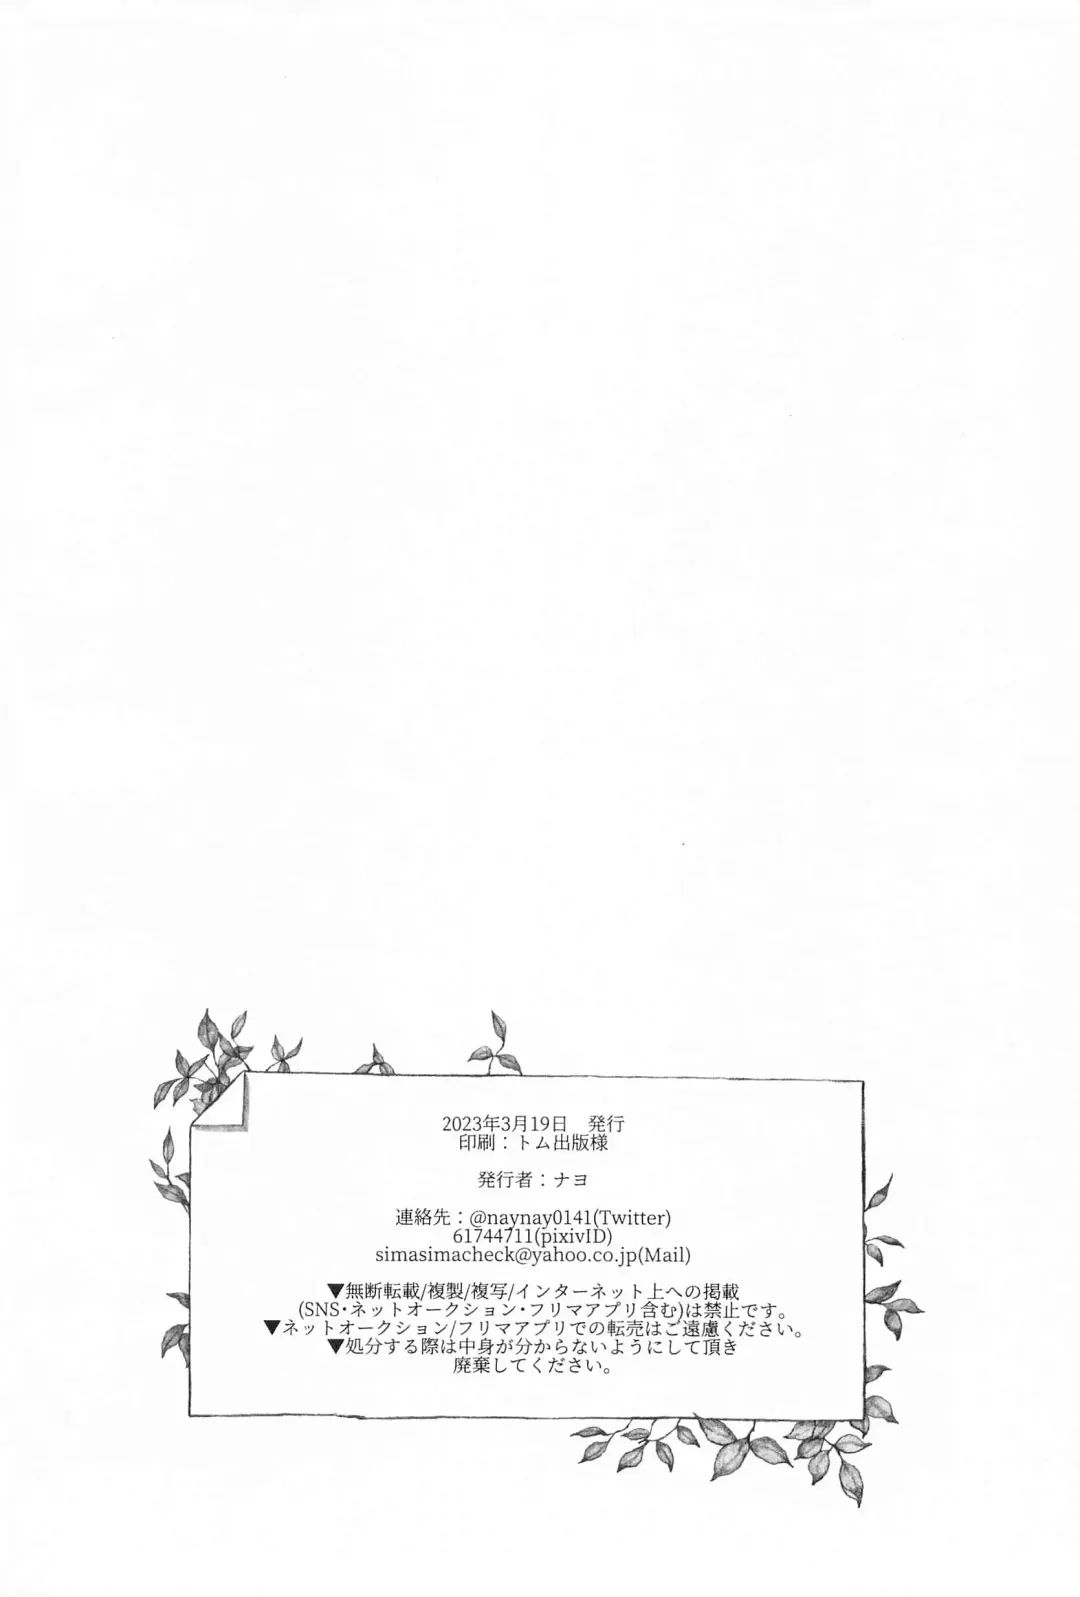 2023年3月19日　発行
印刷：トム出版様
発行者：ナヨ
連絡先：@naynay0141(Twitter)
61744711(pixivID)
simasimacheck@yahoo.co.jp(Mail)
▼無断転載/複製/複写/インターネット上への掲載
(SNS･ネットオークション･フリマアプリ含む)は禁止です。
▼ネットオークション/フリマアプリでの転売はご遠慮ください。
▼処分する際は中身が分からないようにして頂き
廃棄してください。